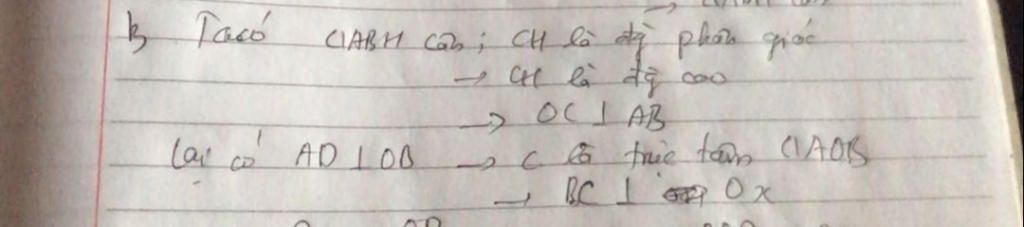 b, Ta có △ABH cân; CH là đg phân giác
→ CH là đg cao
→ OC ⊥ AB
Lại có AD ⊥ OB → C là trực tâm △AOB
→ BC ⊥ Ox